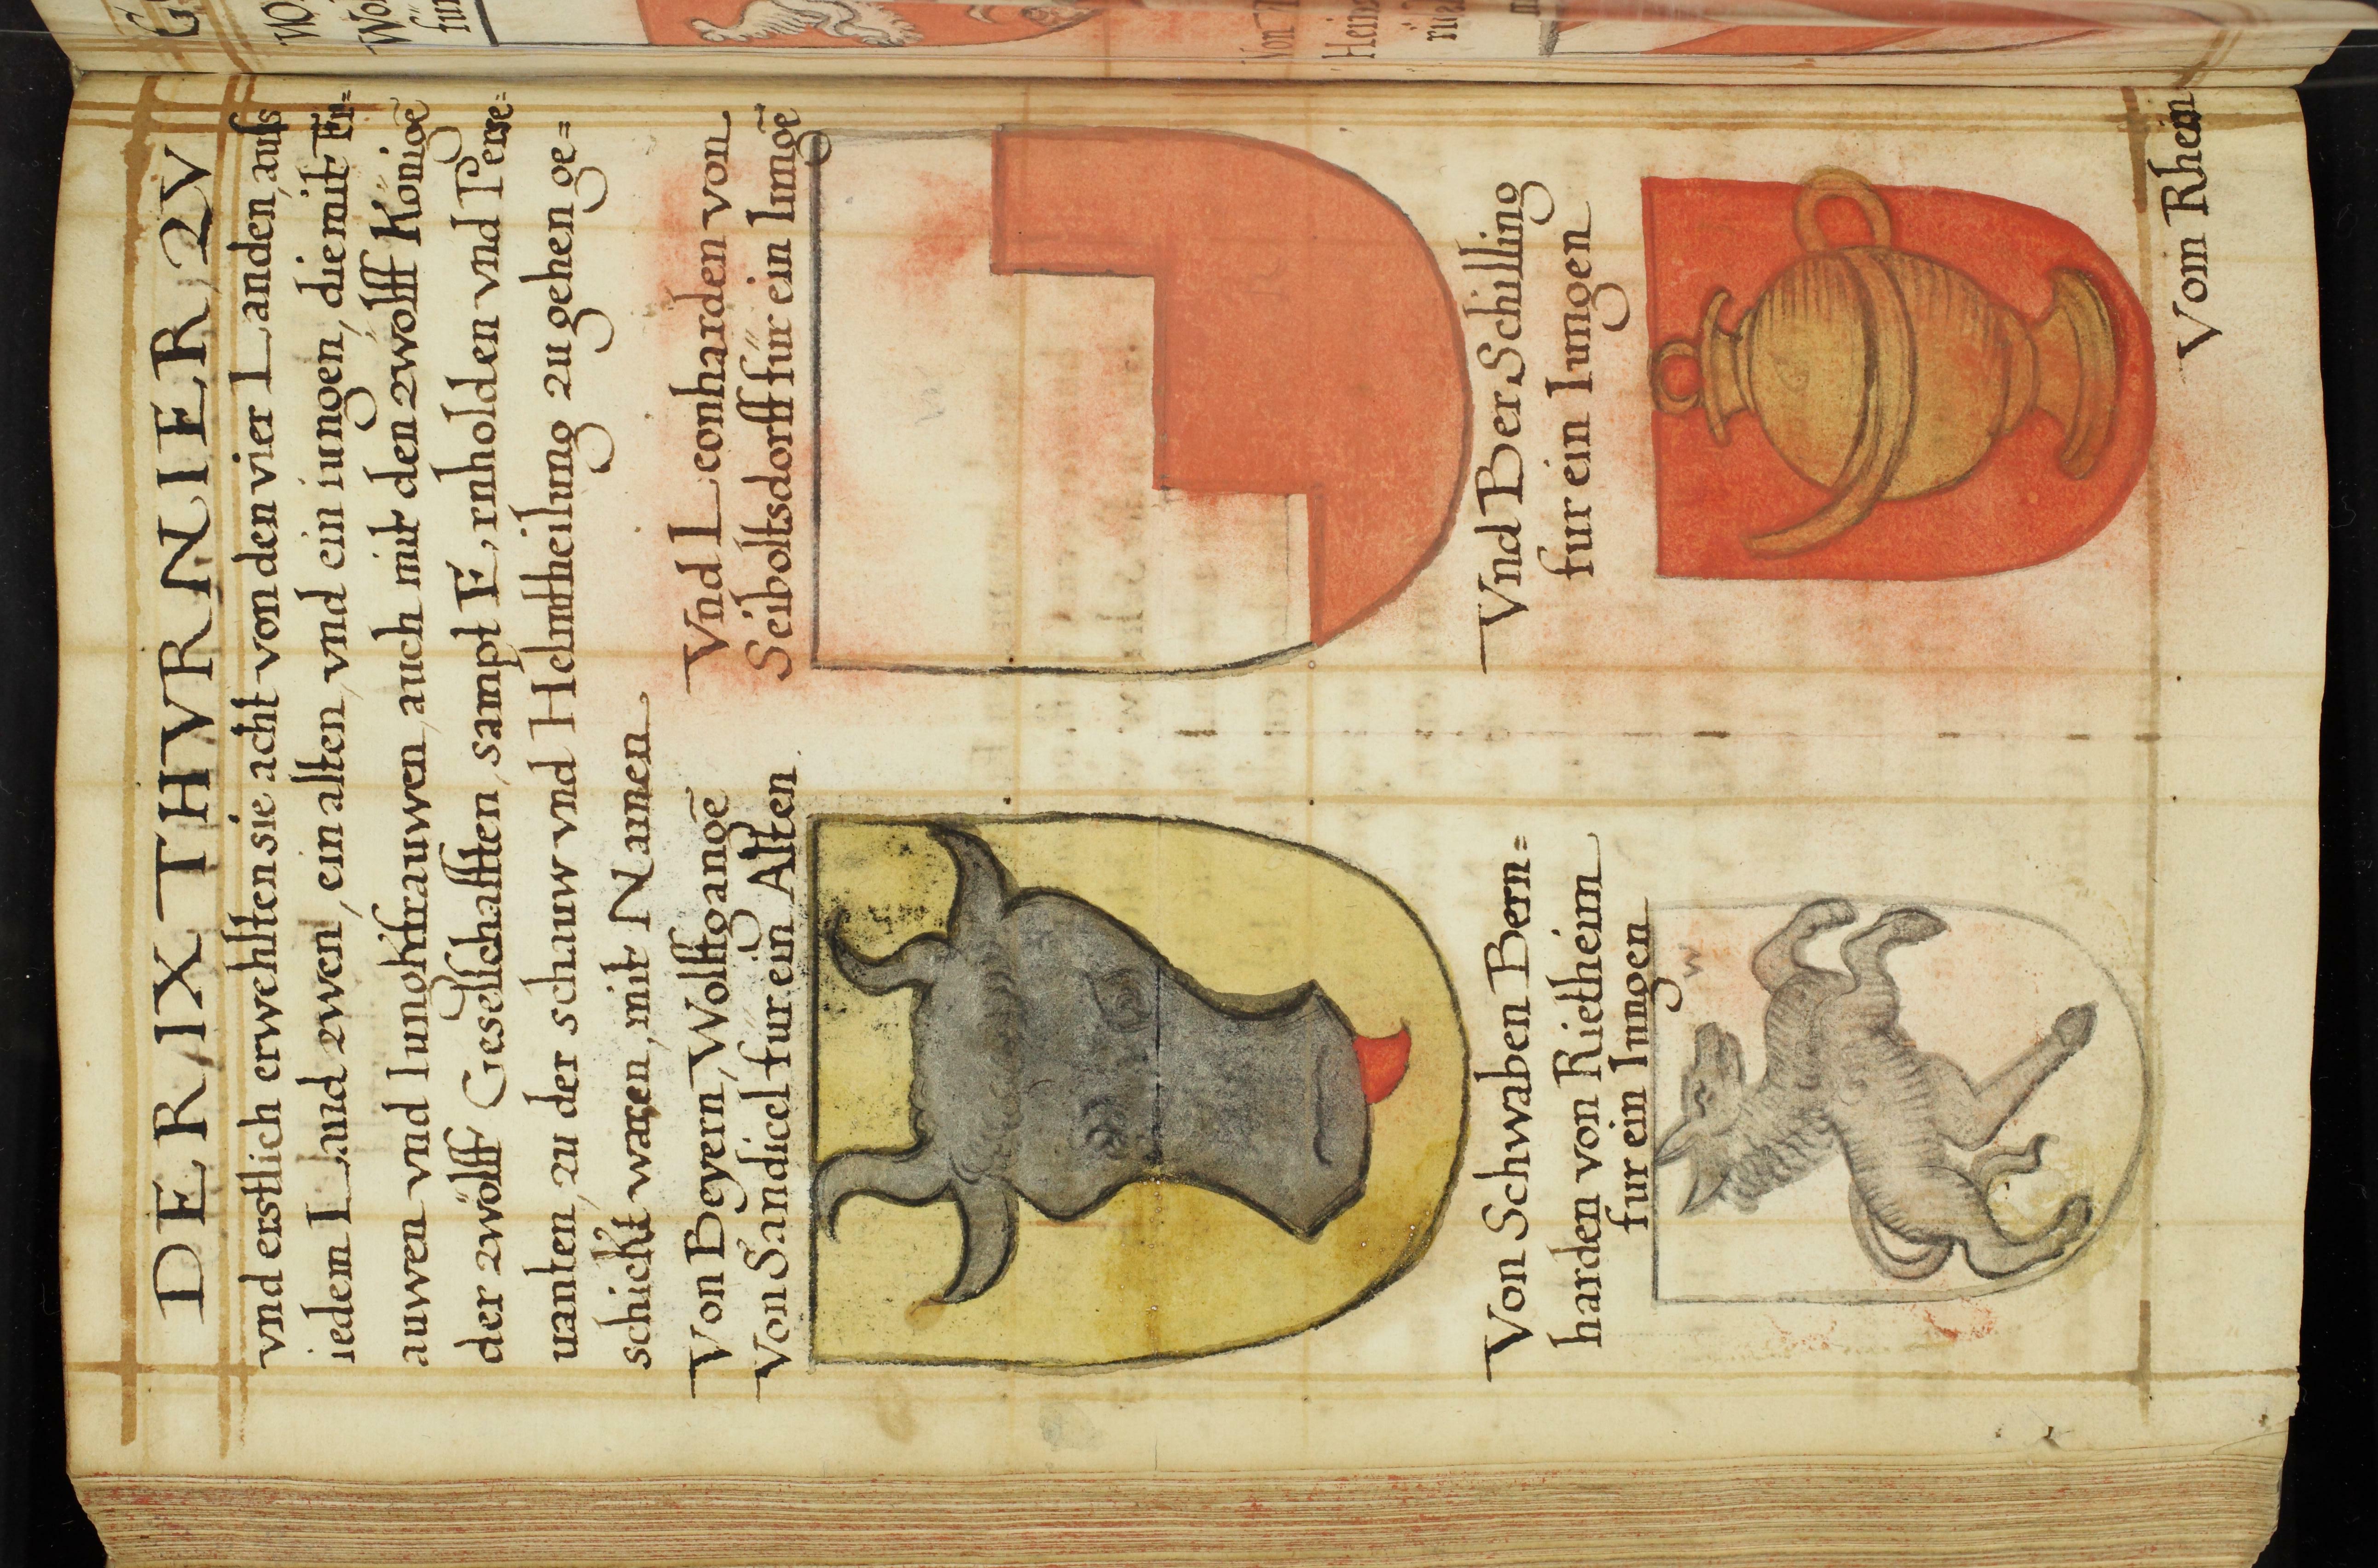 DER IX THVRNIER ZV
vnd erstlich erwehlten sie acht von den vier Landen, auſs
iedem Land zwen, ein alten, vnd ein iungen, die mit Fr=
auwen vnd Iungkfrauwen, auch mit den zwolff Königē
der zwölff Gesellschafften, sampt Ernholden vnd Perse=
uanten, zu der schauw vnd Helmtheilung zu gehen ge=
schickt waren, mit Namen
Von Beyern, Wolffgangē
Von Sandicel für ein Alten
Vnd Leonharden von
Seiboltsdorff für ein Iungē
Von Schwaben Bern=
harden von Rietheim
fur ein Iungen
Vnd Ber Schilling
fur ein Iungen
w
Vom Rhein